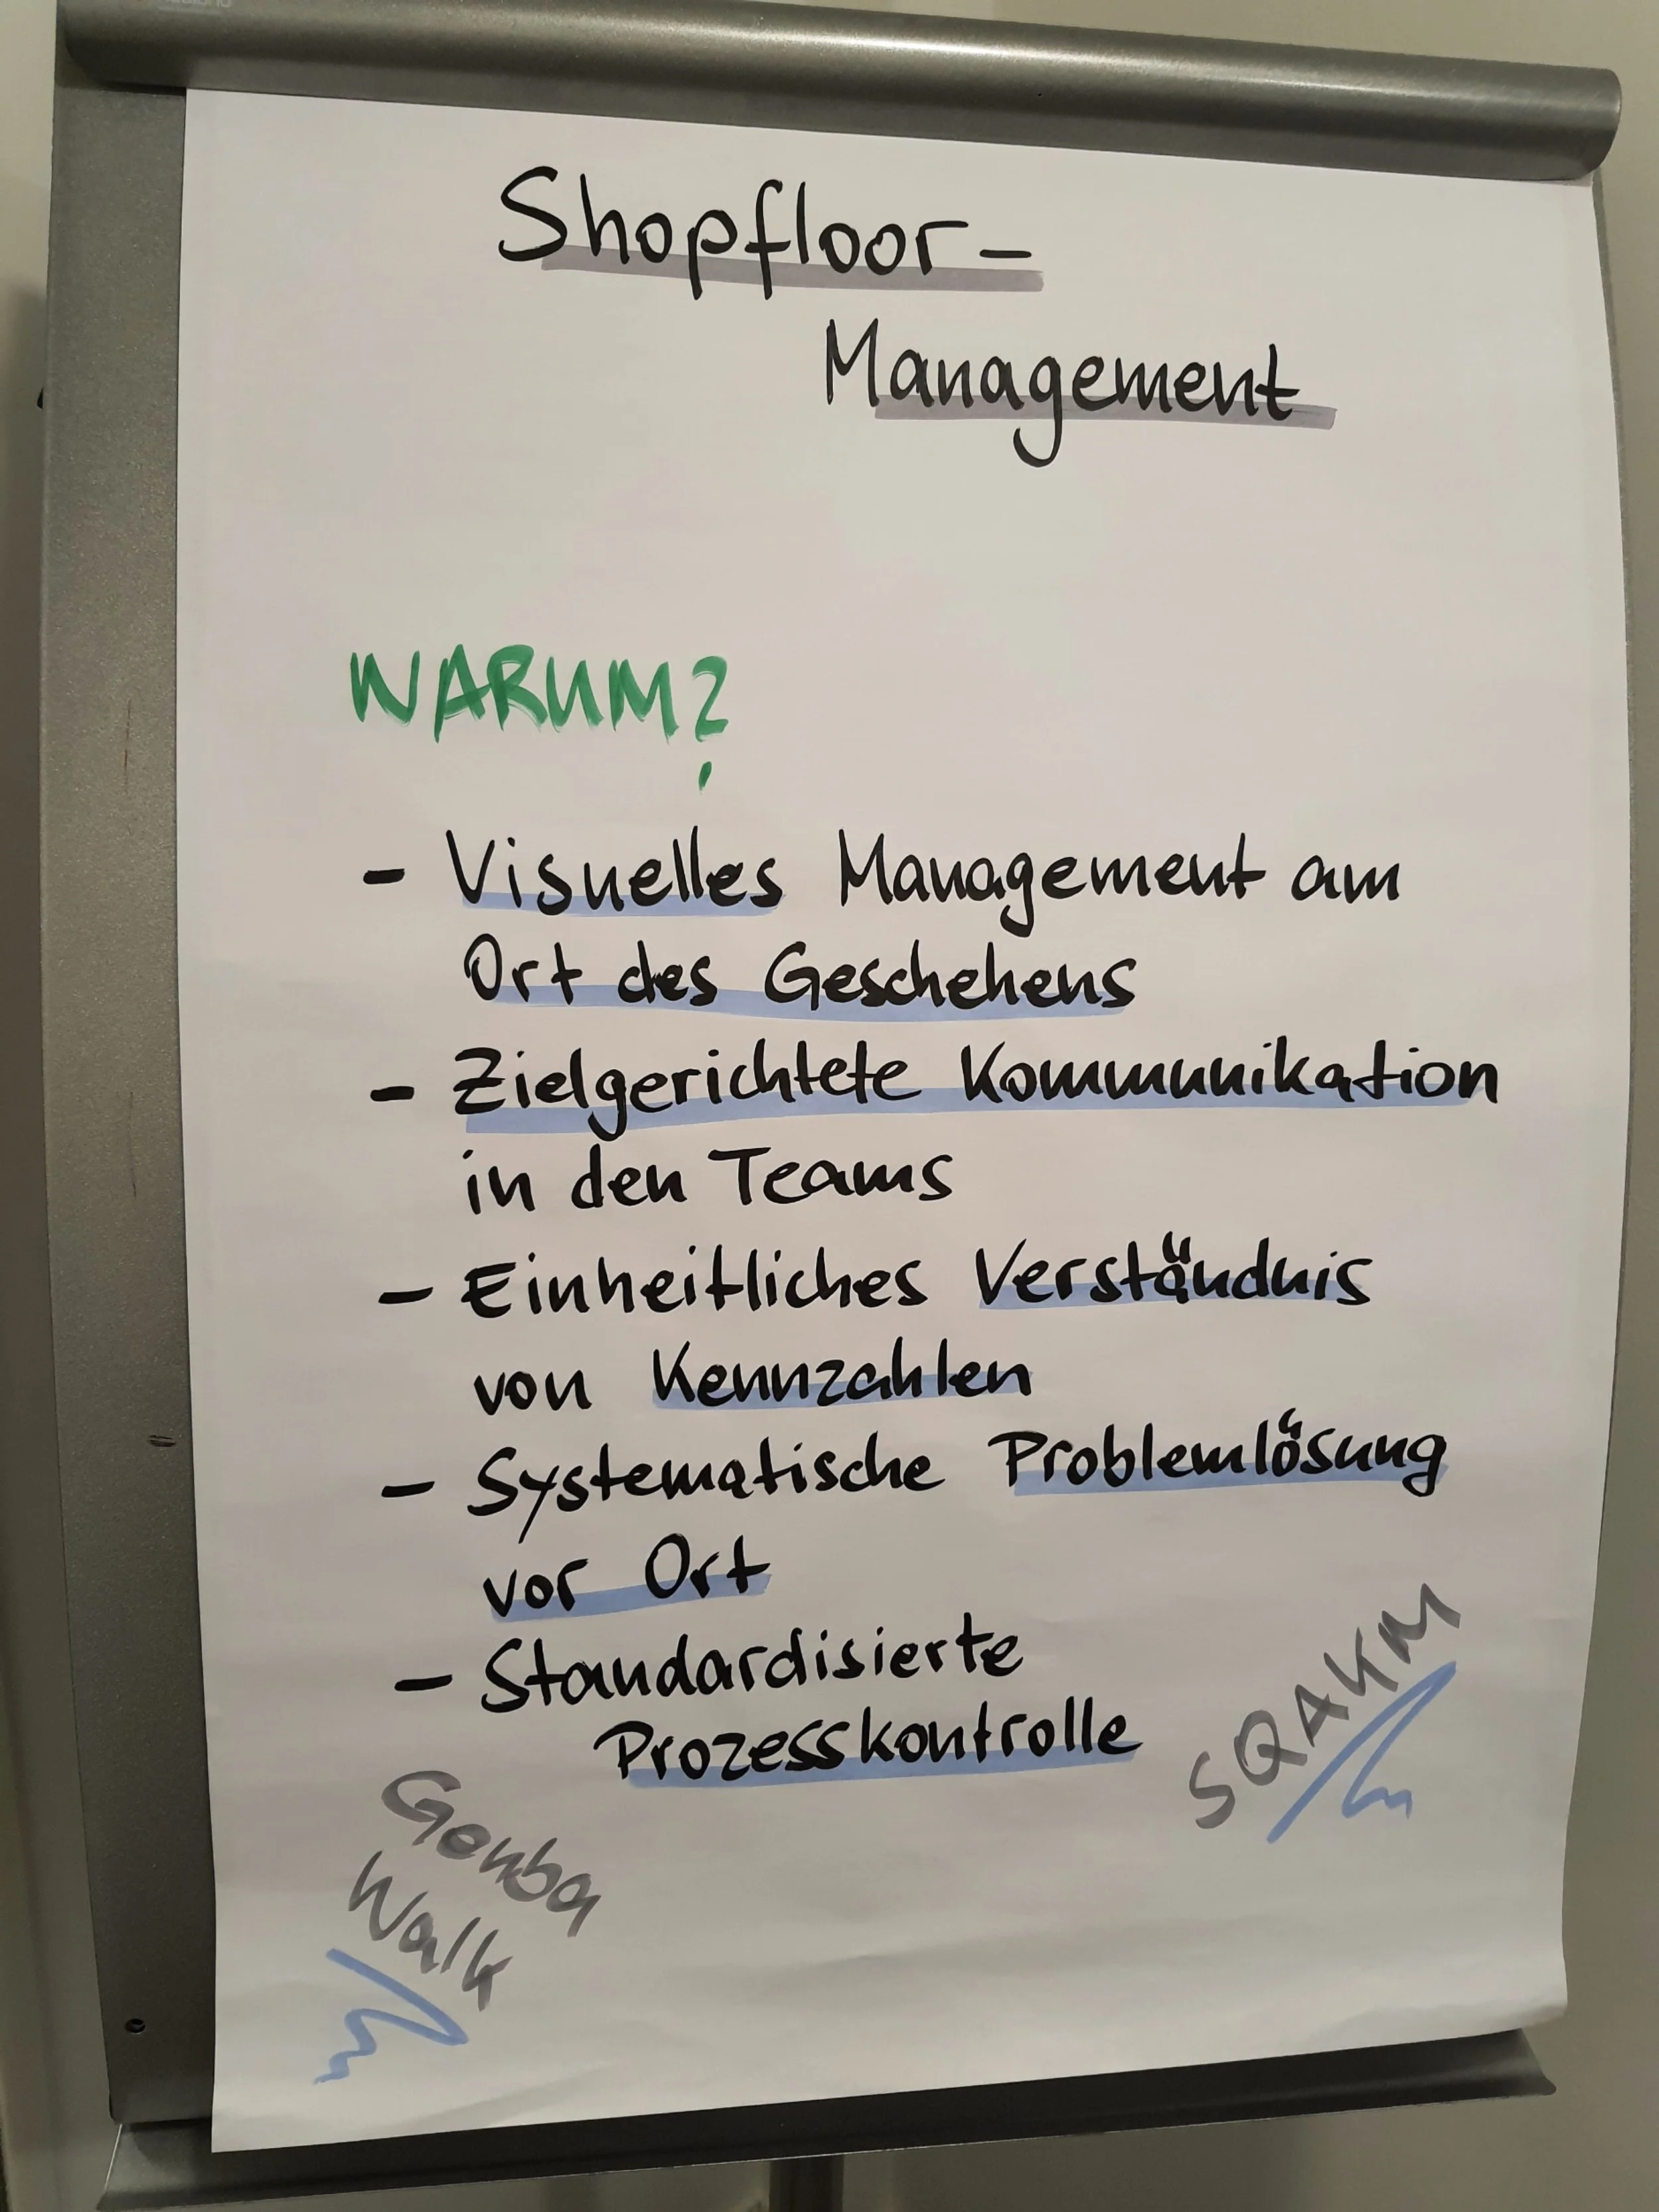 Shopfloor-
Management
WARUM?
- Visuelles Management am
Ort des Geschehens
- Zielgerichtete Kommunikation
in den Teams
- Einheitliches Verständnis
von Kennzahlen
- Systematische Problemlösung
vor Ort
- Standardisierte
Prozesskontrolle
SQAKM
Gemba
Walk